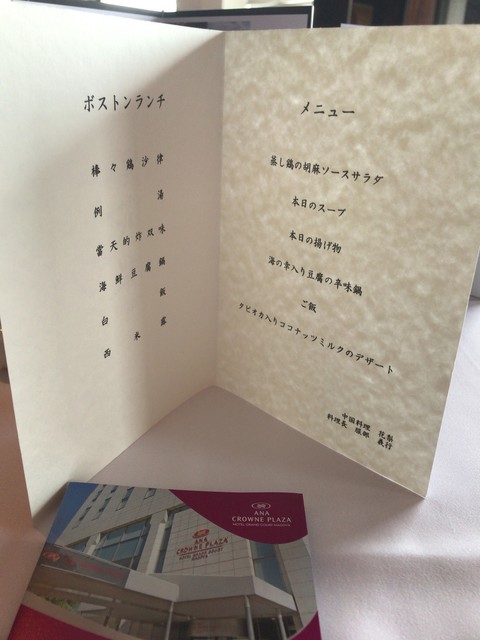 ボストンランチ
棒々鶏沙律
例湯
當天的炸双味
海鮮豆腐鍋
白飯
西米露
メニュー
蒸し鶏の胡麻ソースサラダ
本日のスープ
本日の揚げ物
海の幸入り豆腐の辛味鍋
ご飯
タピオカ入りココナッツミルクのデザート
中国料理 花梨
料理長 服部 義行
ANA
CROWNE PLAZA
HOTEL GRAND COURT NAGOYA
ANA
CROWNE PLAZA